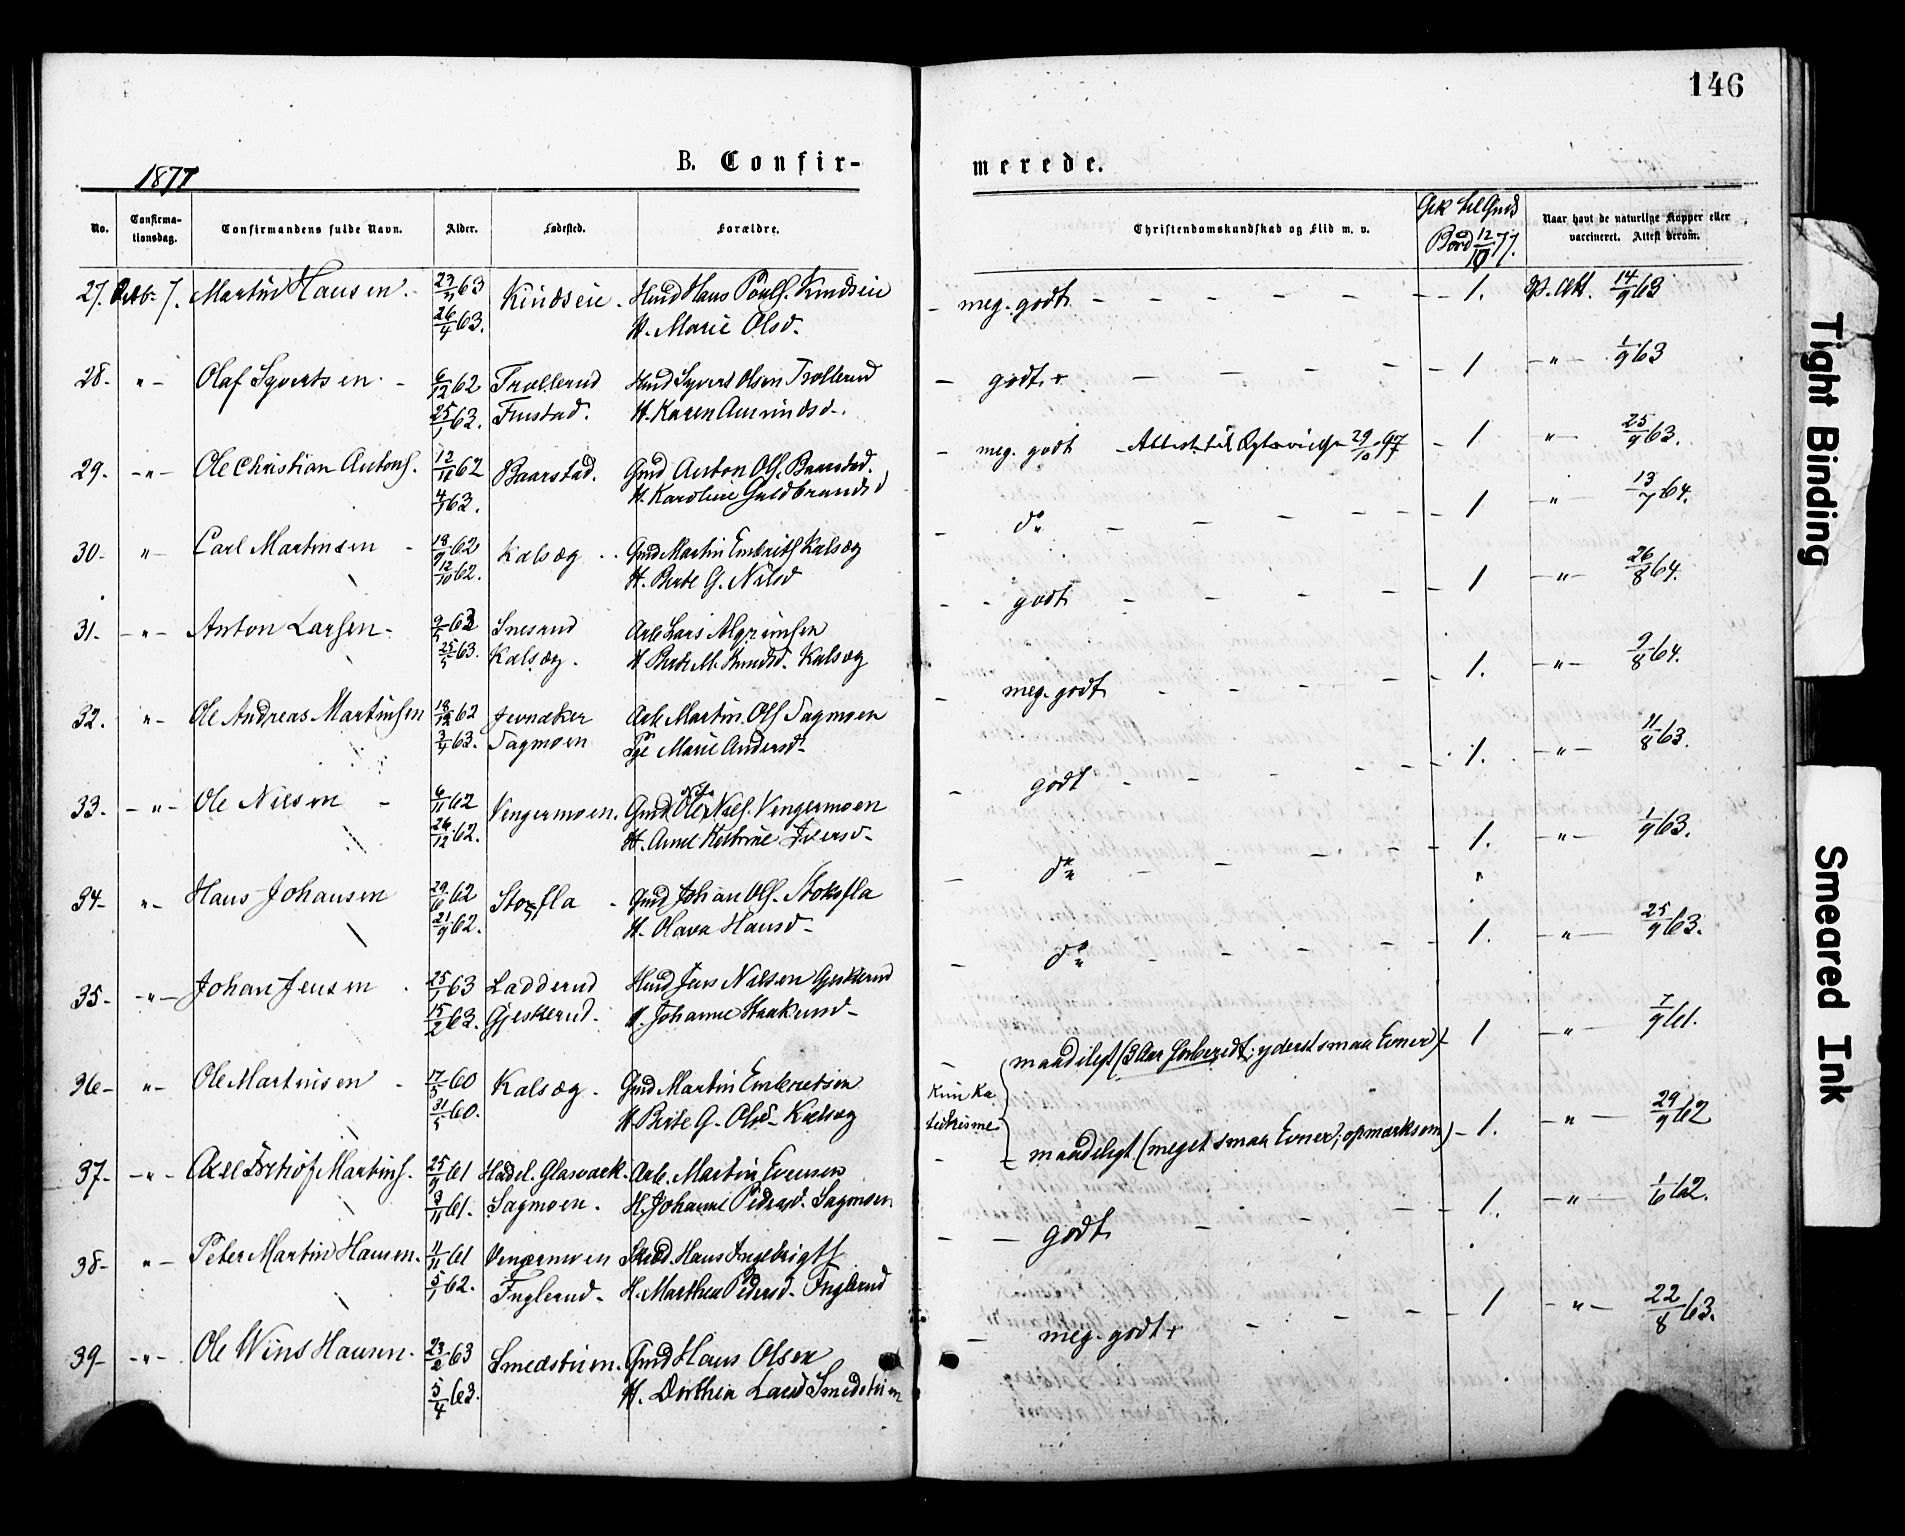 146
1877
B. Confir-
merede.
No.
Confirma-
tionsdag.
Confirmandens fulde Navn.
Alder.
Fødested.
Forældre.
Christendomskundskab og Flid m. v.
Gik til Guds
Bord 12/10 77.
Naar havt de naturlige Kopper eller
vaccineret. Attest derom.
27. Octb. 7. Martin Hansen. Kindseie. Hans Poulf. Kindseie meg. godt. 1. P. Att. 14/9 63
26/4 63. H. Marie Olsd.
28. " Olaf Syvertsen. 6/12 62 Trællerud Syvert Olsen Trollerud godt + 1 " 1/9 63
25/1 63. Finstad. H. Karen Amundsd.
29. " Ole Christian Antonf. 12/11 62 Baarstad. Gmd Anton Olf. Baarstad. meg. godt Attest til 29/10 97 1 " 25/9 63.
4/1 63. H. Karoline Guldbrandsd
30. " Carl Martinsen 18/9 62 Kalsæg Gmd Martin Kalsæg do 1 " 13/7 64.
12/10 62. H. Berte G. Nilsd
31. " Anton Larsen Snesrud Arb. Lars Algrimsen godt 1 " 26/8 64.
25/5 63. Kalsæg. H. Berte M. Knudsd. Kalsæg
32. " Ole Andreas Martinsen 18/12 62 Jevnaker Arb. Martin Olf. Sagmoen meg. godt 1. " 9/8 64.
3/4 63. Sagmoen Marie Andersd.
33. " Ole Nilsen 6/11 62 Vengermoen. Gmd Ole Niels. Vengermoen godt 1. " 11/8 63.
26/12 62. H. Iversd.
34. " Hans Johansen 29/6 62 Gmd Johan Olf. Stoksfla do 1. " 1/9 63.
21/9 62. H. Olava Hansd.
35. " Johan Jensen 25/1 63 Ladderud Hmd Jens Nilsen Gjeskerud do 1. " 25/9 63.
15/2 63. Gjeskerud. H. Johanne
36. " Ole Martinsen 17/5 60 Kalsæg. Gmd Martin Embretsen maadeligt (3 Aar forberedt; yderst smaa Evner) 1 " 7/9 61.
31/5 60. H. Berte G. Olsd. Kalsæg
Kun Ka
techisme
37. " Axel Fritiof Martinf. 25/9 61 Hadel. Glasværk. Arb. Martin Evensen maadeligt (meget smaa Evner; opmærksom) 1. " 29/9 62
3/11 61. Sagmoen. H. Johanne Pedersd. Sagmoen
38. " Peter Martin Hansen. 11/11 61 Vengermoen Hans godt 1. " 1/6 62.
5/1 62. Englerud. H. Marthea Pedersd. Englerud
39. " Ole Wins Hansen. 23/2 63 Smedstuen. Gmd Hans Olsen meg. godt + 1 " 22/8 63.
5/4 63. H. Dorthea Larsd Smedstuen
Tight Binding
Smeared Ink